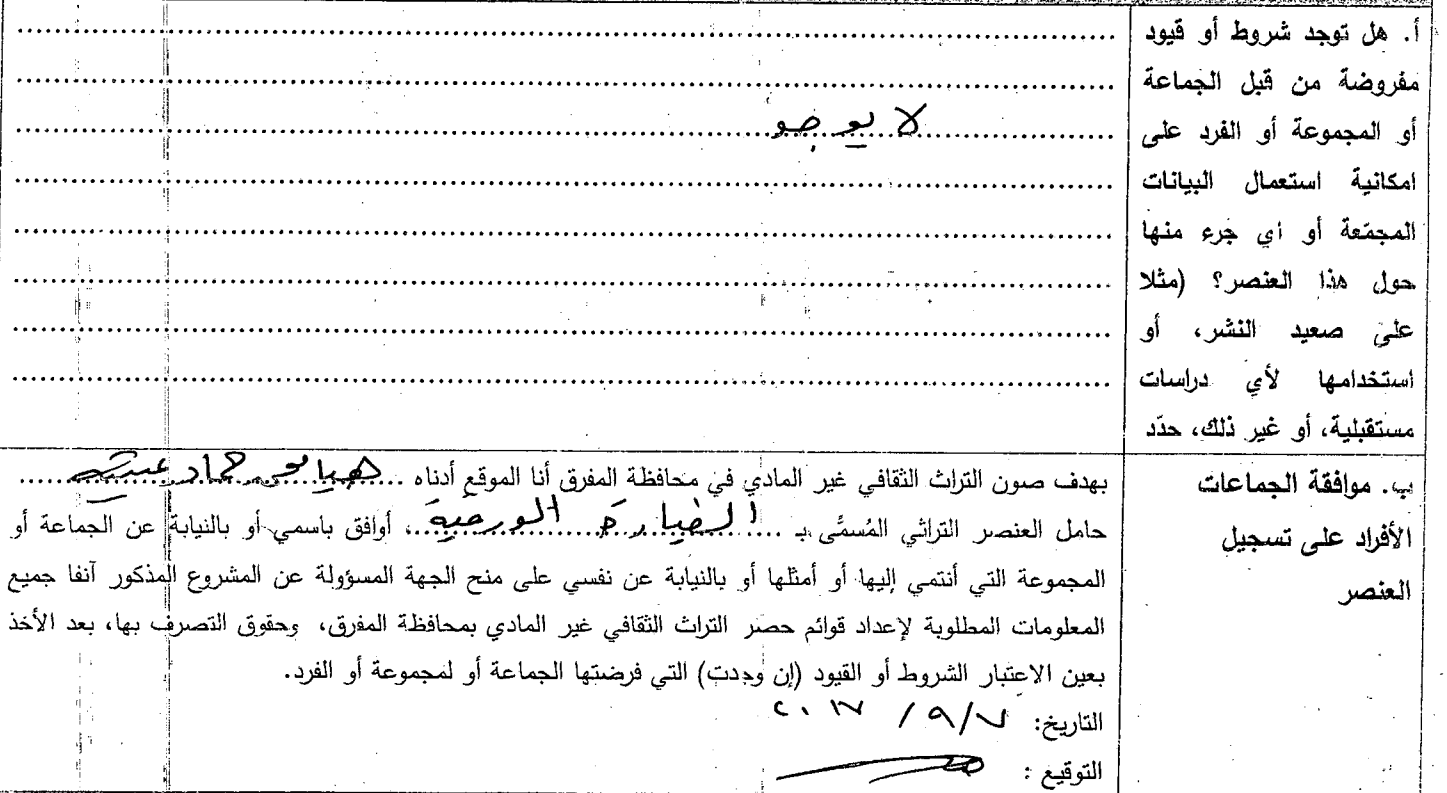 أ. هل توجد شروط أو قيود
مفروضة من قبل الجماعة
أو المجموعة أو الفرد على
امكانية استعمال البيانات
المجمّعة أو اي جرء منها
حول هذا العنصر؟ (مثلا
على صعيد النشر، أو
استخدامها لأي دراسات
مستقبلية، أو غير ذلك، حدّد
لا يوجد
ب. موافقة الجماعات
الأفراد على تسجيل
العنصر
بهدف صون التراث الثقافي غير المادي في محافظة المفرق أنا الموقع أدناه ..... حماد .....
حامل العنصر التراثي المُسمَّى بـ .....، أوافق باسمي أو بالنيابة عن الجماعة أو
المجموعة التي أنتمي إليها أو أمثلها أو بالنيابة عن نفسي على منح الجهة المسؤولة عن المشروع المذكور آنفا جميع
المعلومات المطلوبة لإعداد قوائم حصر التراث الثقافي غير المادي بمحافظة المفرق، وحقوق التصرف بها، بعد الأخذ
بعين الاعتبار الشروط أو القيود (إن وجدت) التي فرضتها الجماعة أو لمجموعة أو الفرد.
التاريخ: ٧/٩/ ٢٠١٧
التوقيع :